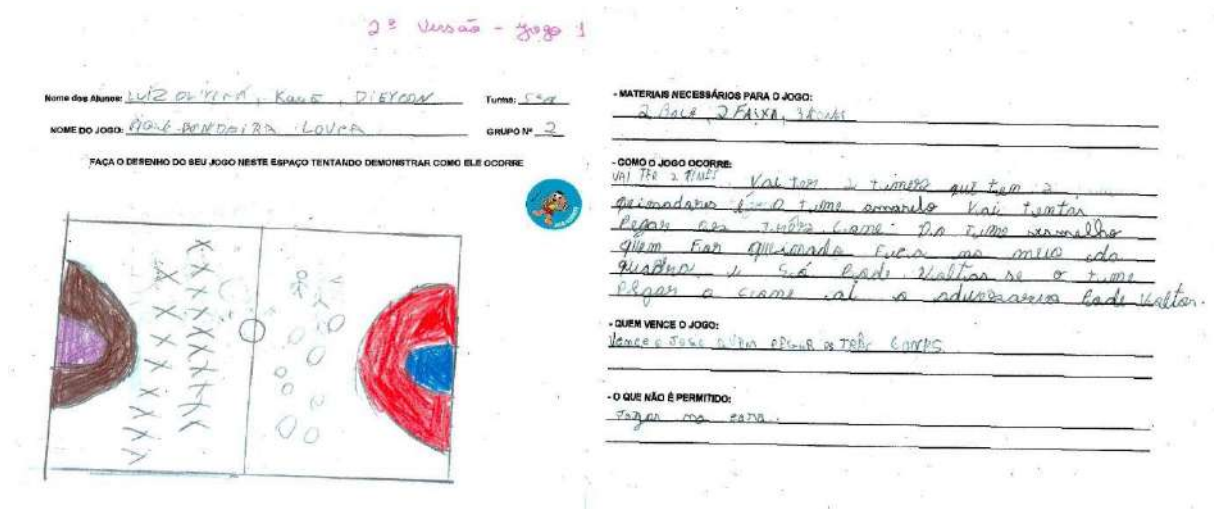 2ª Versão - Jogo 1
Nome dos Alunos: LUIZ, Kauê, DIEYCON Turma: 5ª
NOME DO JOGO: PIQUE BANDEIRA LOUCA GRUPO Nº 2
FAÇA O DESENHO DO SEU JOGO NESTE ESPAÇO TENTANDO DEMONSTRAR COMO ELE OCORRE
- MATERIAIS NECESSÁRIOS PARA O JOGO:
2 FAIXA, 3
- COMO O JOGO OCORRE:
VAI TER 2 TIMES Vai ter 2 times que tem 2
queimadores e o time amarelo vai tentar
Pegar os cone Do Time vermelho
quem for queimado Fica no meio da
quadra e Só Pode Voltar se o time
Pegar o cone aí o adversario Pode Voltar.
- QUEM VENCE O JOGO:
Vence o Jogo QUEM PEGAR OS TRÊS CONES
- O QUE NÃO É PERMITIDO:
Jogar na cara.